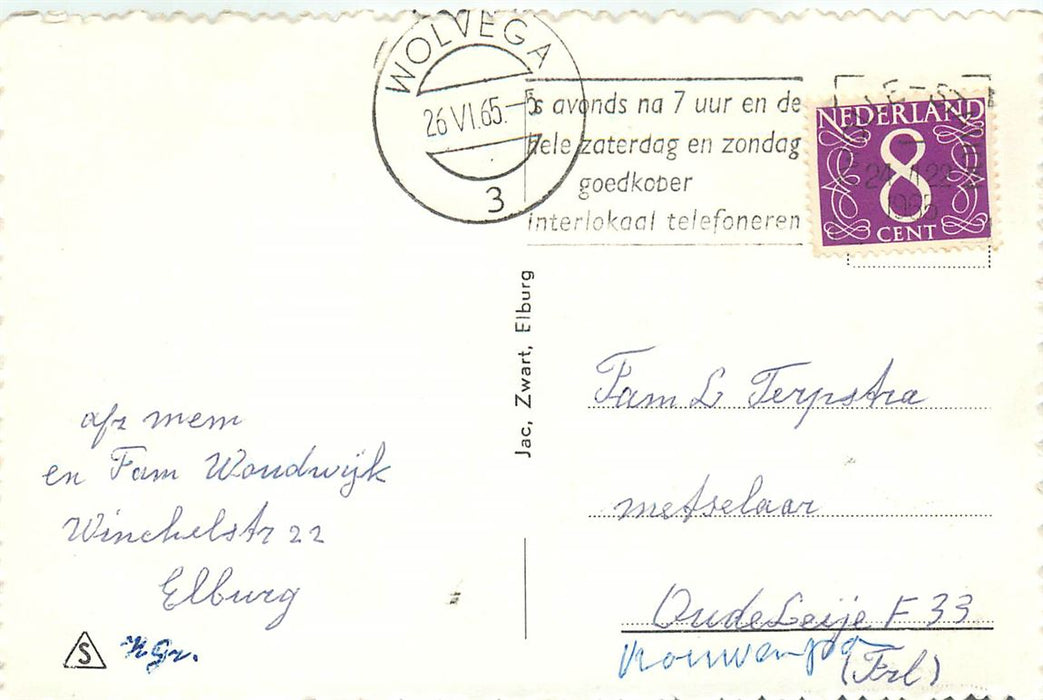 WOLVEGA
26 VI.65.
3
's avonds na 7 uur en de
hele zaterdag en zondag
goedkoper
interlokaal telefoneren
NEDERLAND
8
CENT
1965
Jac, Zwart, Elburg
afz mem
en Fam Woudwijk
Winckelstr 22
Elburg
S
Fam L Terpstra
metselaar
Oude Leije F 33
(Frl)